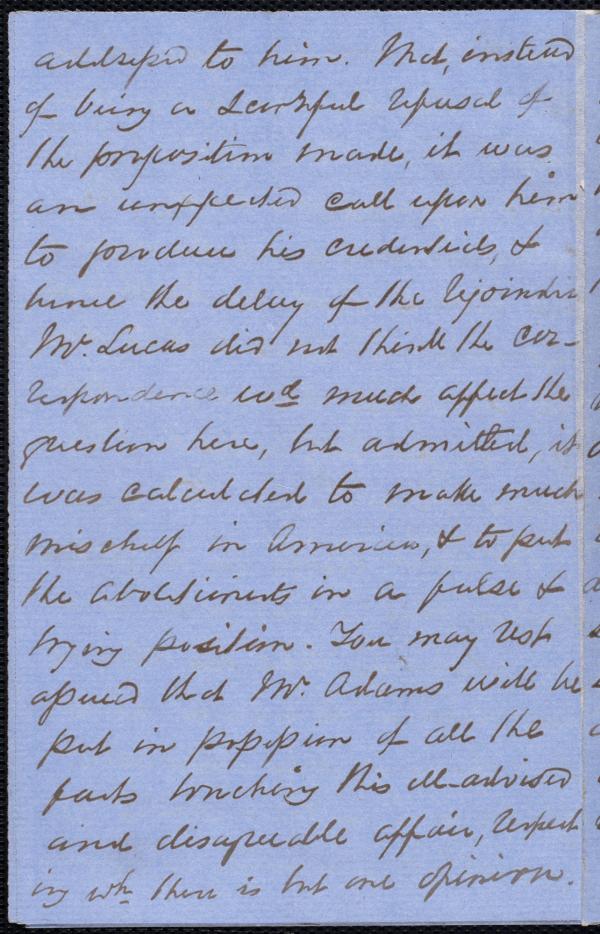 addressed to him. That, instead
of being a scornful refusal of
the proposition made, it was
an unexpected call upon him
to produce his credentials, &
hence the delay of the rejoinder
Mr. Lucas did not think the cor-
respondence wd much affect the
question here, but admitted, it
was calculated to make much
mischief in America, & to put
the abolitionists in a false &
trying position. You may rest
assured that Mr. Adams will be
put in possession of all the
facts touching this ill-advised
and disagreeable affair, respect
ing wh. there is but one opinion.